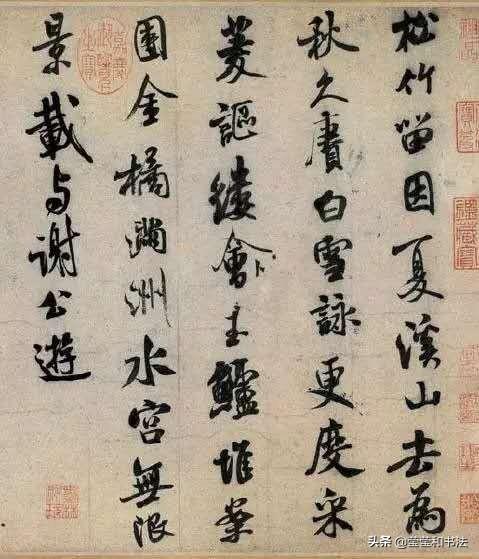 松竹留因夏溪山去為
秋久賡白雪詠更度采
菱謳縷會玉鱸堆案
團金橘滿洲水宮無限
景載与謝公遊
头条 @莹莹和书法